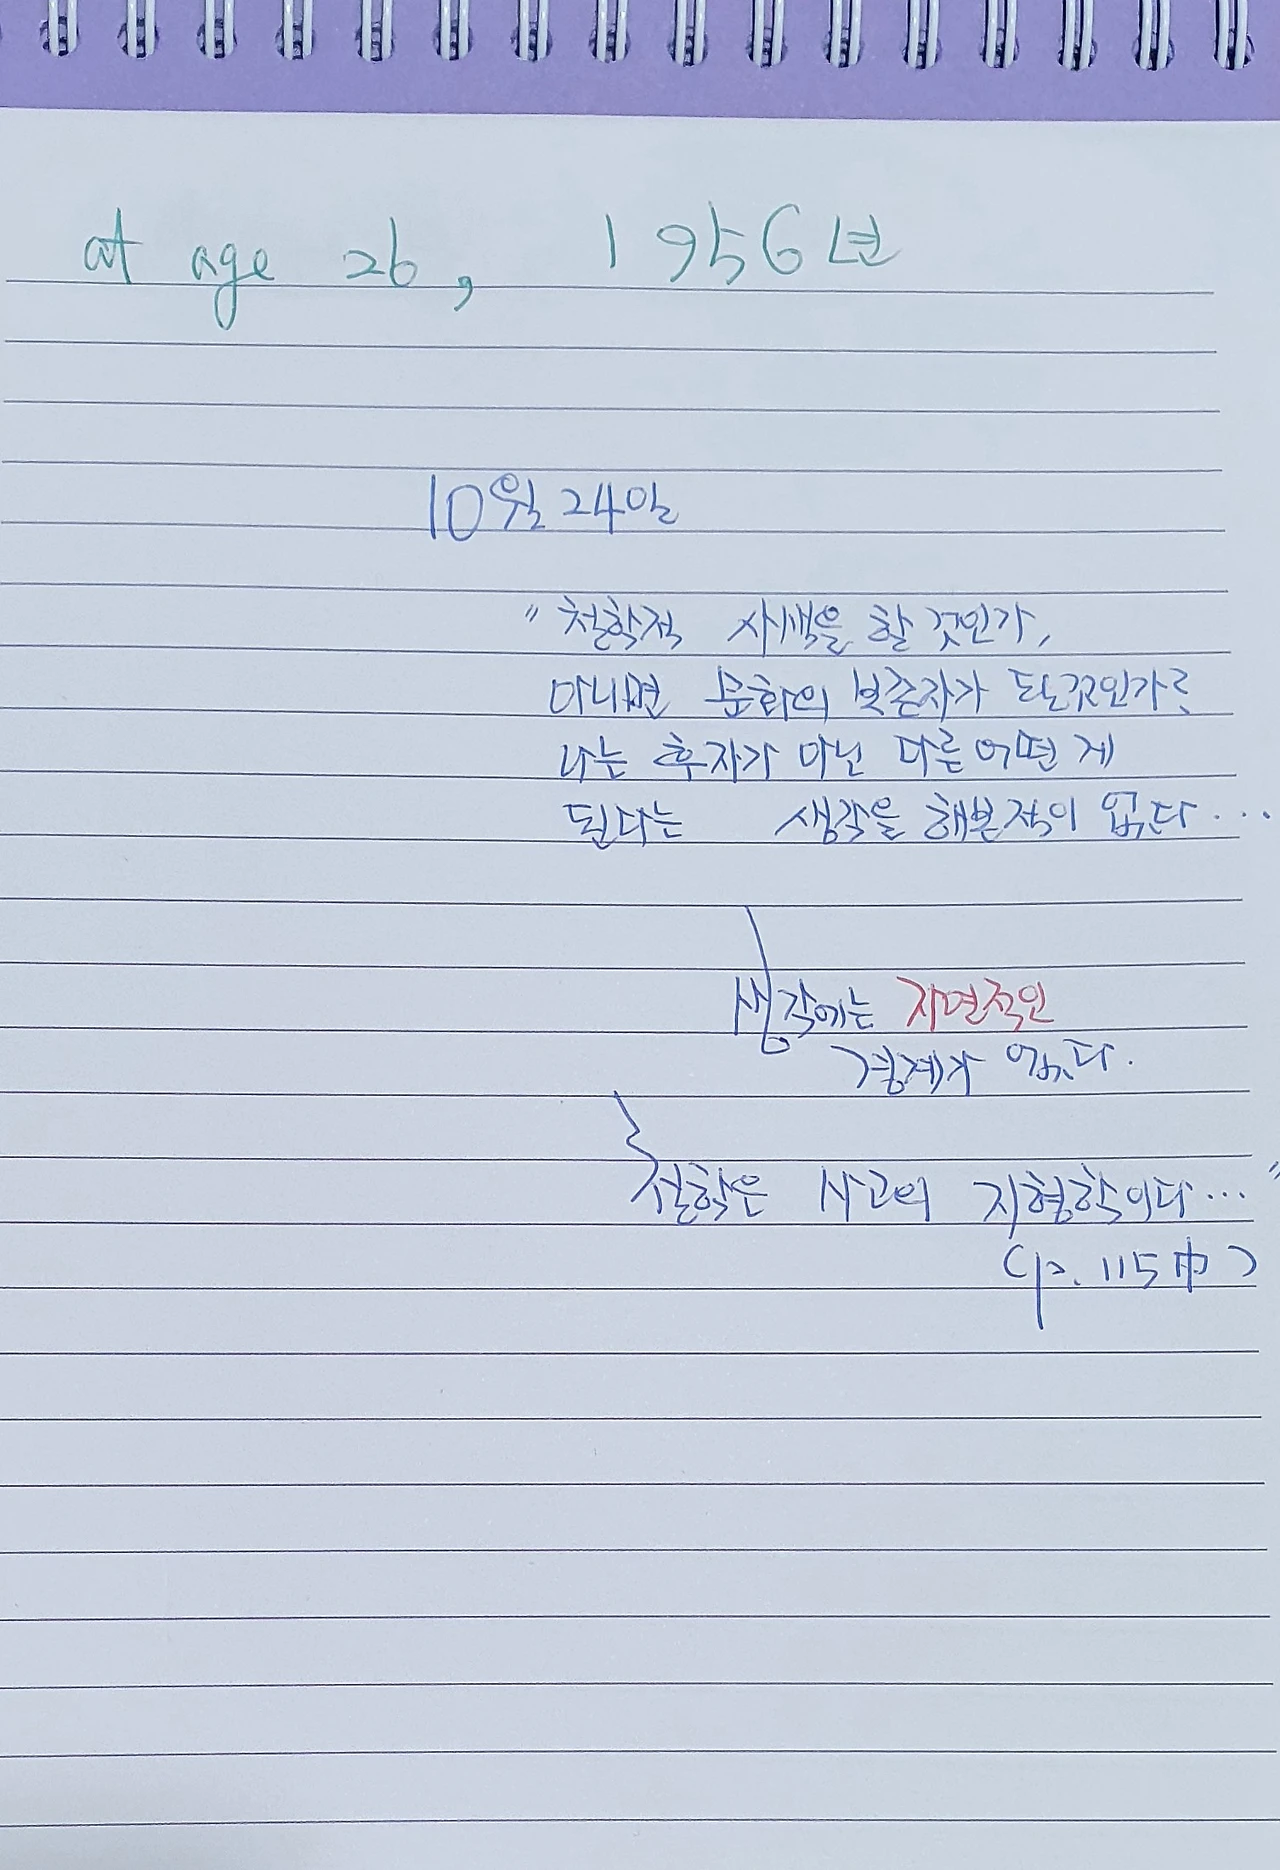 at age 26, 1956년
10월 24일
"철학적 사색을 할 것인가,
아니면 문화의 보존자가 될것인가?
나는 후자가 아닌 다른 어떤 게
된다는 생각을 해본적이 없다...
생각에는 자연적인
경계가 없다.
철학은 사고의 지형학이다..."
(p. 115 中)